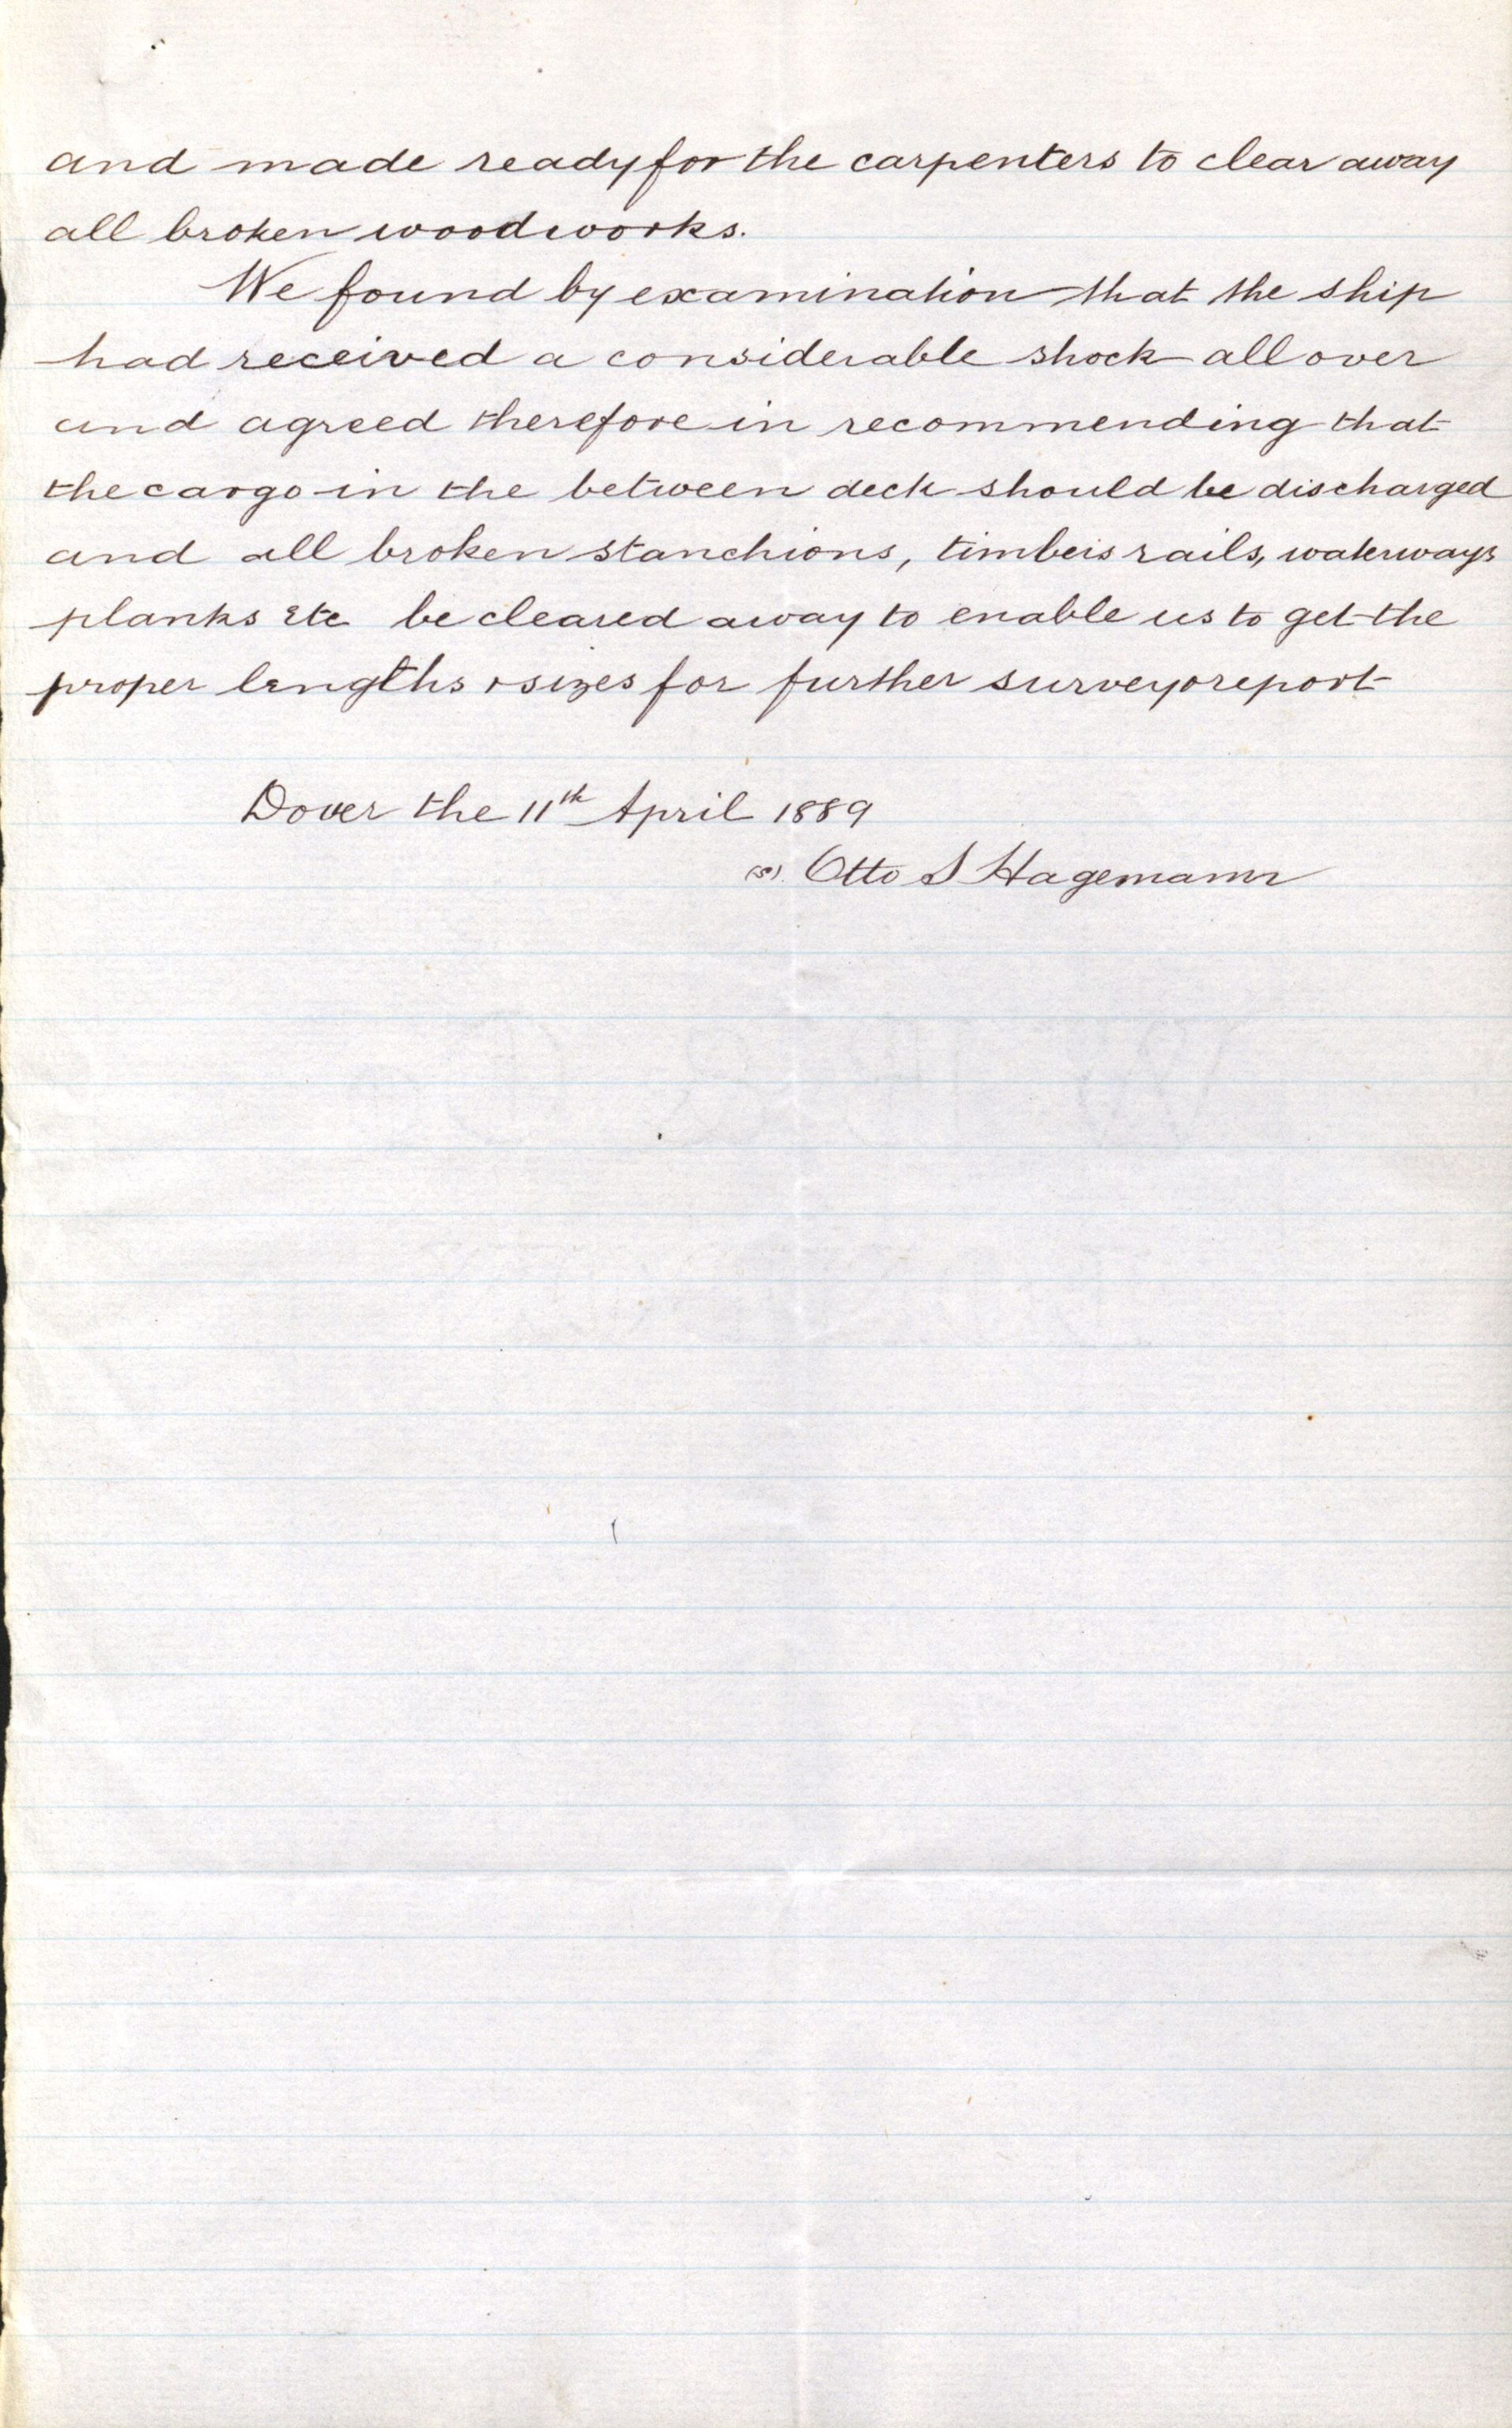 and made ready for the carpenters to clear away
all broken woodworks.
We found by examination that the ship
had received a considerable shock all over
and agreed therefore in recommending that
the cargo in the between deck should be discharged
and all broken stanchions, timbers rails, waterways
planks etc be cleared away to enable us to get the
proper lengths & sizes for further survey & report
Dover the 11th April 1889
(s). Otto S Hagemann